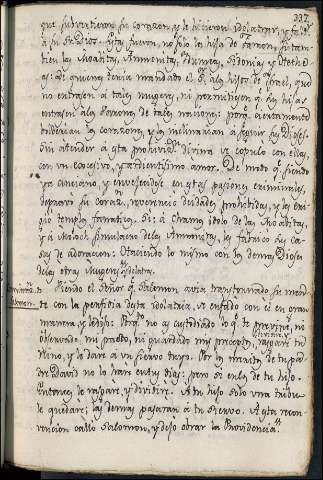 337
que subvertieron su corazon, y le hicieron idolatrar, y
a su Dios. Estas fueron, no solo la hija de Faraon, sino tam-
bien las Moabitas, Ammonitas, Idumeas, Sidonias, y Etheheas
de quienes tenia mandado el Sr a los hijos de Israel, que
no entrasen a tales mugeres, ni permitiesen q. sus hijas
entrasen a los Varones de tales naciones: porq. ciertamente
los corazones, y los inclinarian a seguir sus Dioses.
Sin atender a esta prohivicion divina se copulo con ellas,
con un excesivo, y ardentisimo amor. De modo q. siendo
ya anciano, y envejecido en estas pasiones criminales,
depravò su corazon, reverencio deidades prohibidas, y les eri-
gio templos fanaticos. Si: a Chamos idolo de los Moabitas,
y a Moloch simulacro de los Ammonitas, les fabricò sus ca-
sas de adoracion: Haciendo lo mismo con los demas Dioses
de las otras Mugeres idolatras.
Viendo el Señor q. Salomon avia transformado su men-
te con la perfidia de esta idolatria, se enfadò con el en gran
manera, y le dijo: Porq. no as custodiado lo q. te previne, ni
observado mi pacto, ni guardado mis preceptos, rasgare tu
Reino, y le dare a un siervo tuyo. Por los meritos de tu pa-
dre David no lo hare en tus dias; pero si en los de tu hijo.
Entonces le rasgare, y dividire. A tu hijo solo una tribu
le quedarà; las demas pasaran a tu siervo. A esta recon-
vencion callò Salomon, y dejo obrar la Providencia